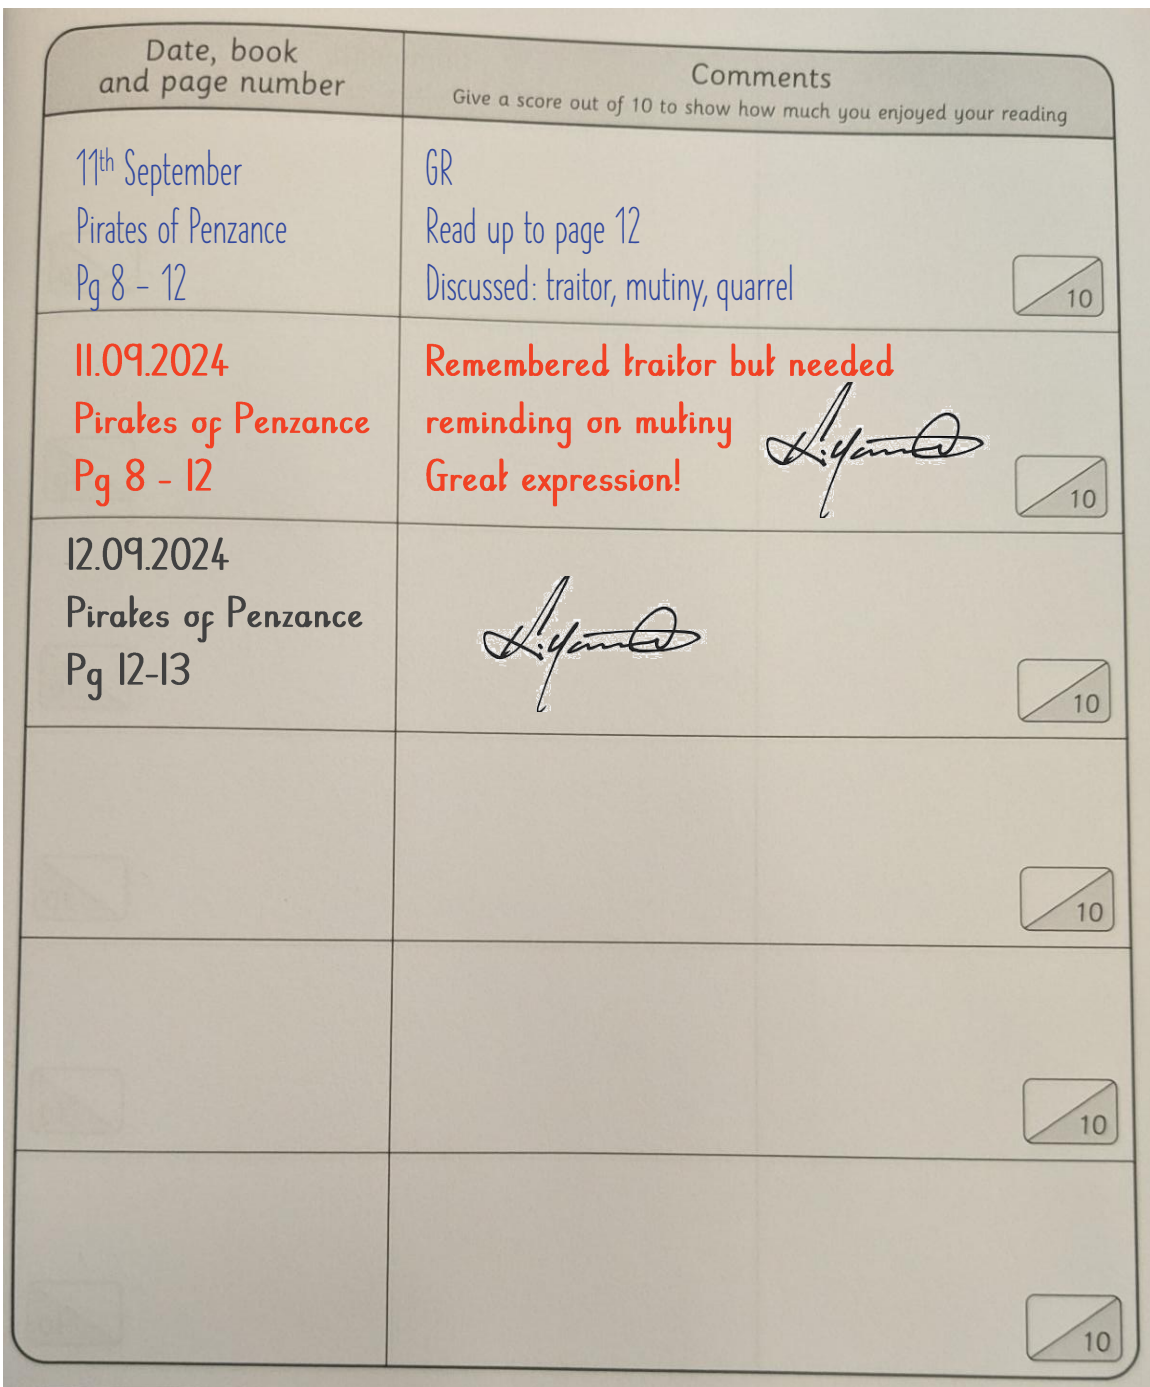 Date, book
and page number
Comments
Give a score out of 10 to show how much you enjoyed your reading
11th September
Pirates of Penzance
Pg 8 - 12
GR
Read up to page 12
Discussed: traitor, mutiny, quarrel
10
11.09.2024
Pirates of Penzance
Pg 8 - 12
Remembered traitor but needed
reminding on mutiny
Great expression!
10
12.09.2024
Pirates of Penzance
Pg 12-13
10
10
10
10